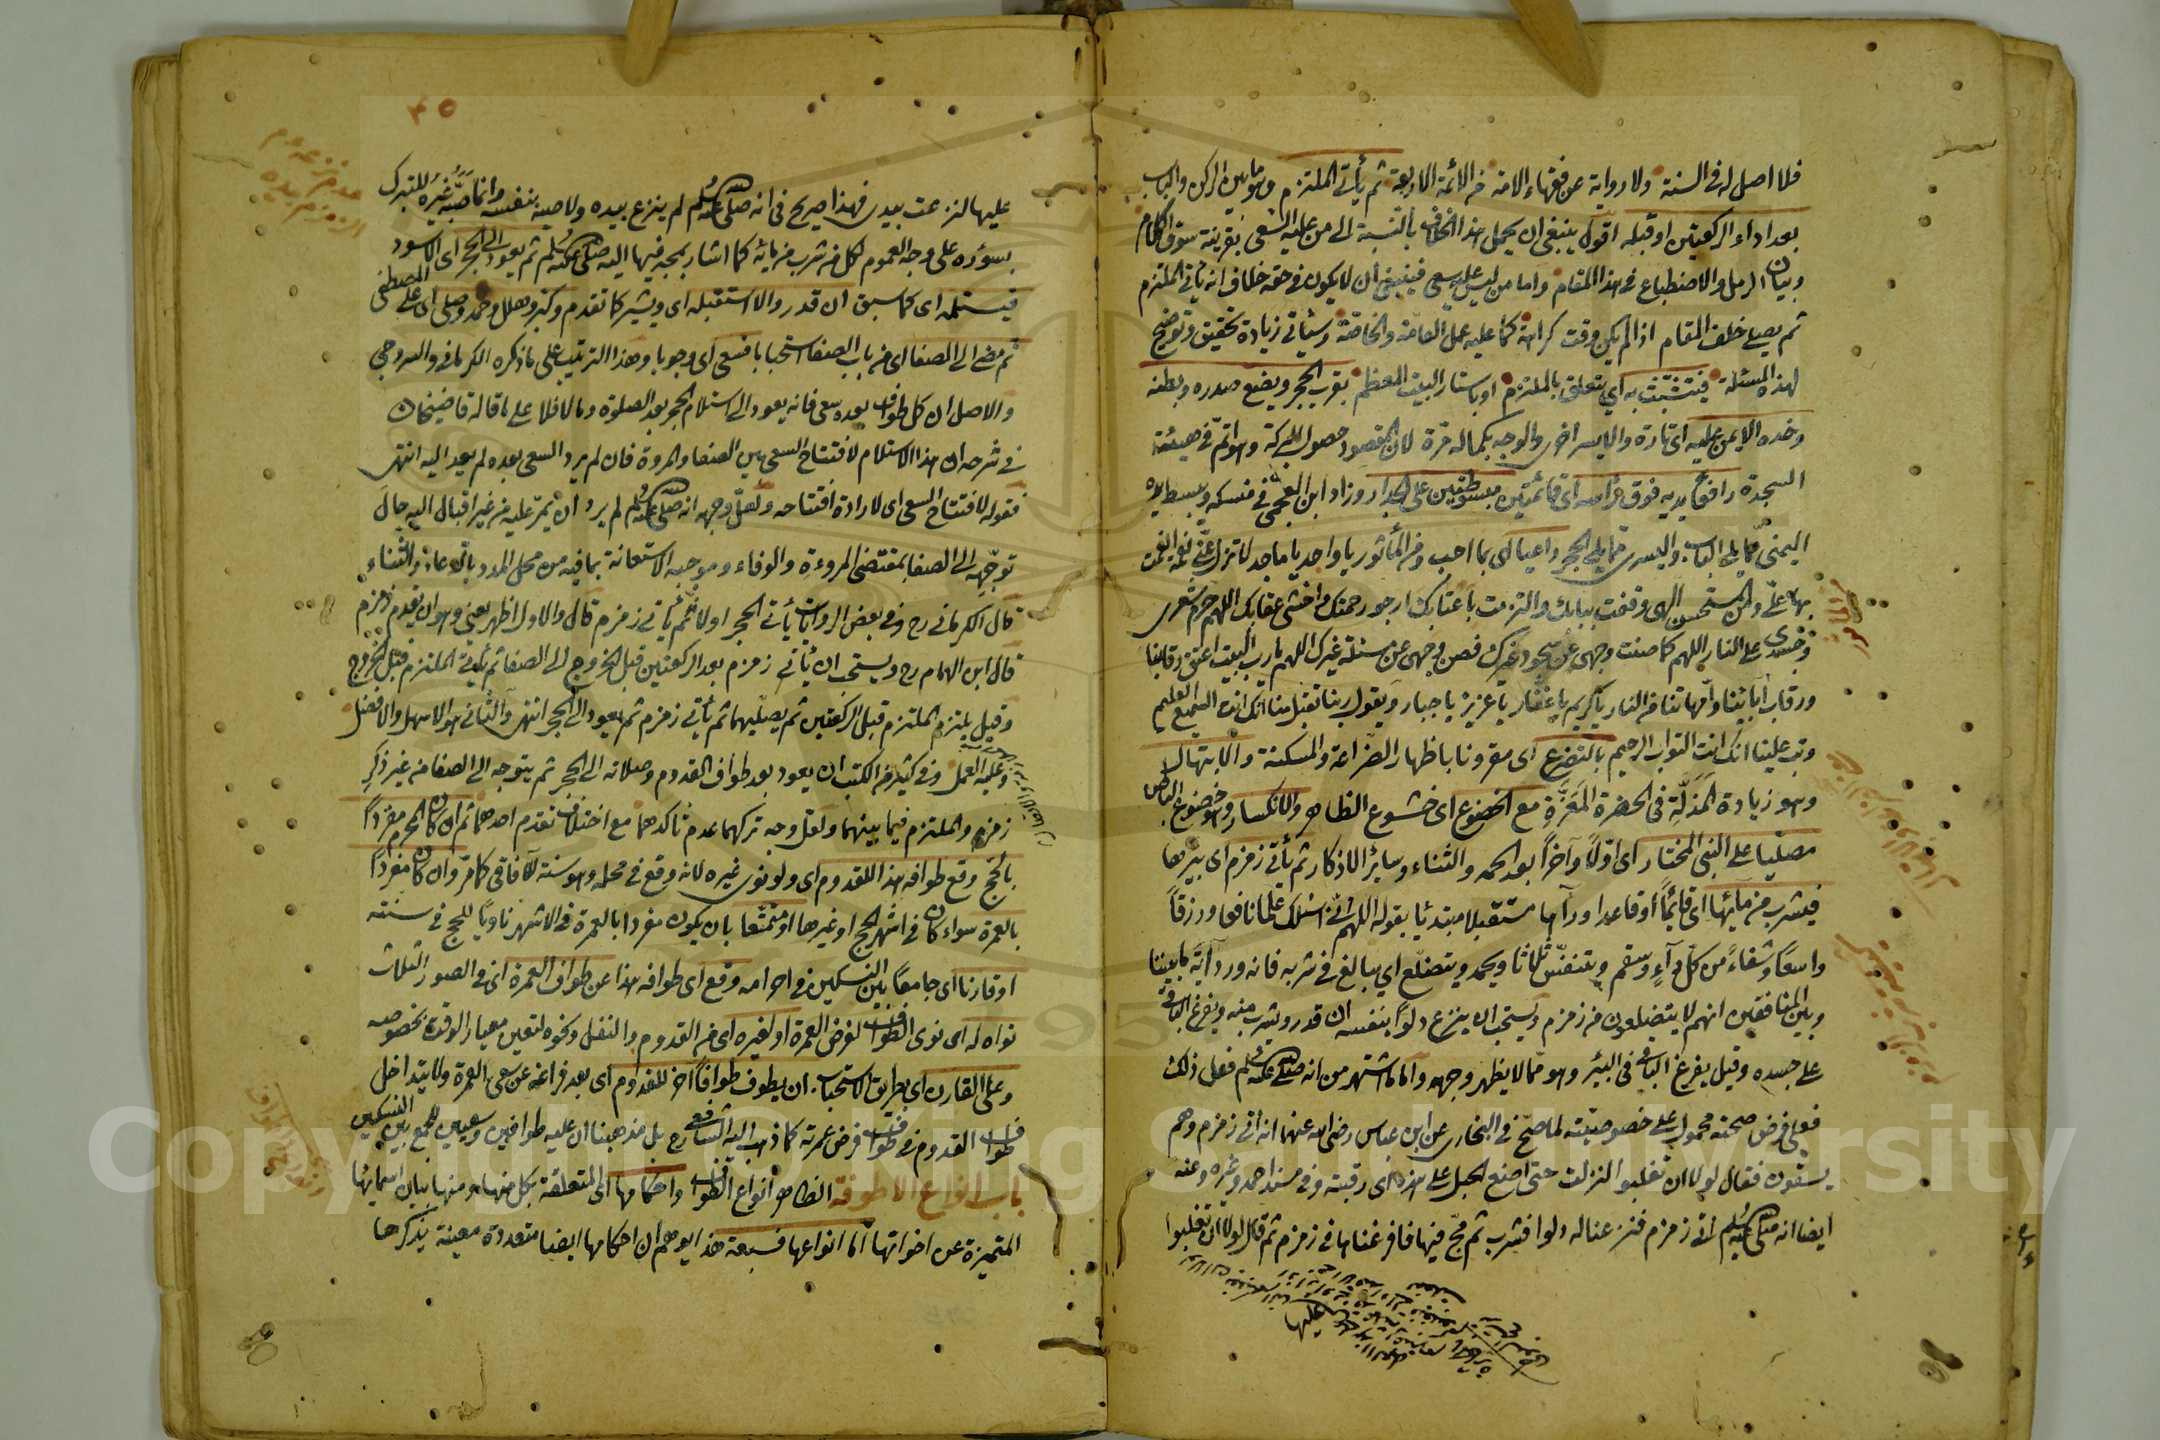 فلا اصل له في السنة ولا رواية عن فقهاء الامة من الائمة الاربعة ثم يأتي الملتزم وهو ما بين الركن والباب
بعد اداء الركعتين او قبله اقول ينبغي ان يحمل هذا الخلاف بالنسبة الى من عليه السعي بقرينة سوق الكلام
وبيان الرمل والاضطباع في هذا المقام واما من ليس عليه سعي فينبغي ان لا يكون في حقه خلاف انه يأتي الملتزم
ثم يصلي خلف المقام اذا لم يكن وقت كراهة كما عليه عمل العامة والخاصة وسيأتي زيادة تحقيق وتوضيح
لهذه المسئلة فيتشبث به اي يتعلق بالملتزم او باستار البيت المعظم بقرب الحجر ويضع صدره وبطنه
وخده الايمن عليه اي تارة والايسر اخرى والوجه بكماله مرة لان المقصود حصول البركة وهو اتم في هيئة
السجدة رافعا يديه فوق رأسه اي قائمتين مبسوطتين على الجدار وزاد ابن العجمي في منسكه ويبسط يده
اليمنى مما يلي الباب واليسرى مما يلي الحجر داعيا اي بما احب ومن المأثور يا واجد يا ماجد لا تزل عني نعمة انعمت
بها علي ومن المستحسن الهي وقفت ببابك والتزمت باعتابك ارجو رحمتك واخشى عقابك اللهم حرم شعري
وجسدي على النار اللهم كما صنت وجهي عن سجود غيرك فصن وجهي عن مسئلة غيرك اللهم يا رب البيت اعتق رقابنا
ورقاب آبائنا وامهاتنا من النار يا كريم يا غفار يا عزيز يا جبار ويقول ربنا تقبل منا انك انت السميع العليم
وتب علينا انك انت التواب الرحيم بالتضرع اي مقرونا باظهار الضراعة والمسكنة والابتهال
وهو زيادة المذلة في الحضرة المعزة مع الخضوع اي خشوع الظاهر والانكسار وهو خضوع الباطن
مصليا على النبي المختار اي اولا وآخرا بعد الحمد والثناء وسائر الاذكار ثم يأتي زمزم اي بئرها
فيشرب من مائها اي قائما او قاعدا وراءها مستقبلا مبتدئا بقوله اللهم اني اسئلك علما نافعا ورزقا
واسعا وشفاء من كل داء وسقم ويتنفس ثلاثا ويحمد ويتضلع اي يبالغ في شربه فانه ورد آية ما بيننا
وبين المنافقين انهم لا يتضلعون من زمزم ويستحب ان ينزع دلوا بنفسه ان قدر ويشرب منه ويفرغ الباقي
على جسده وقيل يفرغ الباقي في البئر وهو مما لا يظهر وجهه واما ما اشتهر من انه صلى الله عليه وسلم فعل ذلك
فعلى فرض صحته محمول على خصوصيته لما صح في البخاري عن ابن عباس رضي الله عنهما انه اتى زمزم وهم
يسقون فقال لولا ان تغلبوا لنزلت حتى اضع الحبل على هذه اي رقبته وفي مسند احمد وغيره وعنه
ايضا انه صلى الله عليه وسلم اتى زمزم فنزعنا له دلوا فشرب ثم مج فيها فافرغناها في زمزم ثم قال لولا ان تغلبوا
عليها
٣٥
عليها لنزعت بيدي فهذا صريح في انه صلى الله عليه وسلم لم ينزع بيده ولا صبه بنفسه وانما صبه غيره للتبرك
بسؤره على وجه العموم لكل من شرب من مائه كما اشار بمجه فيها اليه صلى الله عليه وسلم ثم يعود الى الحجر اي الاسود
فيستلمه اي كما سبق ان قدر والا استقبله اي ويشير كما تقدم وكبر وهلل وحمد وصلى اي على المصطفى
ثم مضى الى الصفا اي من باب الصفا استحبابا فسعى اي وجوبا وهذا الترتيب على ما ذكره الكرماني والسروجي
والاصل ان كل طواف بعده سعي فانه يعود الى استلام الحجر بعد الصلوة وما لا فلا على ما قاله قاضيخان
في شرحه ان هذا الاستلام لافتتاح السعي بين الصفا والمروة فان لم يرد السعي بعده لم يعد اليه انتهى
فقوله لافتتاح السعي اي لارادة افتتاحه ولعل وجهه انه صلى الله عليه وسلم لم يرد ان يمر عليه من غير اقبال اليه حال
توجهه الى الصفا بمقتضى المروءة والوفاء وموجبه الاستعانة بما فيه من محل المدد بالدعاء والثناء
قال الكرماني رح وفي بعض الروايات يأتي الحجر اولا ثم يأتي زمزم قال والاول اظهر يعني وهو ان يقدم زمزم
قال ابن الهمام رح ويستحب ان يأتي زمزم بعد الركعتين قبل الخروج الى الصفا ثم يأتي الملتزم قبل الخروج
وقيل يلتزم الملتزم قبل الركعتين ثم يصليهما ثم يأتي زمزم ثم يعود الى الحجر انتهى والثاني هو الاسهل والافضل
وعليه العمل وفي كثير من الكتب ان يعود بعد طواف القدوم وصلاته الى الحجر ثم يتوجه الى الصفا من غير ذكر
زمزم والملتزم فيما بينهما ولعل وجه تركهما عدم تأكدهما مع اختلاف تقدم احدهما ثم ان كان المحرم مفردا
بالحج وقع طوافه هذا للقدوم اي ولو نوى غيره لانه وقع في محله وهو سنة للآفاقي كما مر وان كان مفردا
بالعمرة سواء كان في اشهر الحج او غيرها او متمتعا بان يكون مفردا بالعمرة في الاشهر ناويا للحج في سنته
او قارنا اي جامعا بين النسكين في احرامه وقع اي طوافه هذا عن طواف العمرة اي في الصور الثلاث
نواه له اي نوى الطواف لفرض العمرة او لغيره اي من القدوم والنفل ونحوه لتعين معيار الوقت بخصوصه
وعلى القارن اي بطريق الاستحباب ان يطوف طوافا آخر للقدوم اي بعد فراغه عن سعي العمرة ولا يتداخل
طواف القدوم في طواف فرض عمرته كما ذهب اليه الشافعي رح بل مذهبنا ان عليه طوافين وسعيين للجمع بين النسكين
باب انواع الاطوفة الظاهر انواع الطواف واحكامها اي المتعلقة بكل منها ومنها بيان اسمائها
المتميزة عن اخواتها اما انواعها فسبعة هذا يوهم ان احكامها ايضا متعددة معينة يذكرها
Copyright © King Saud University